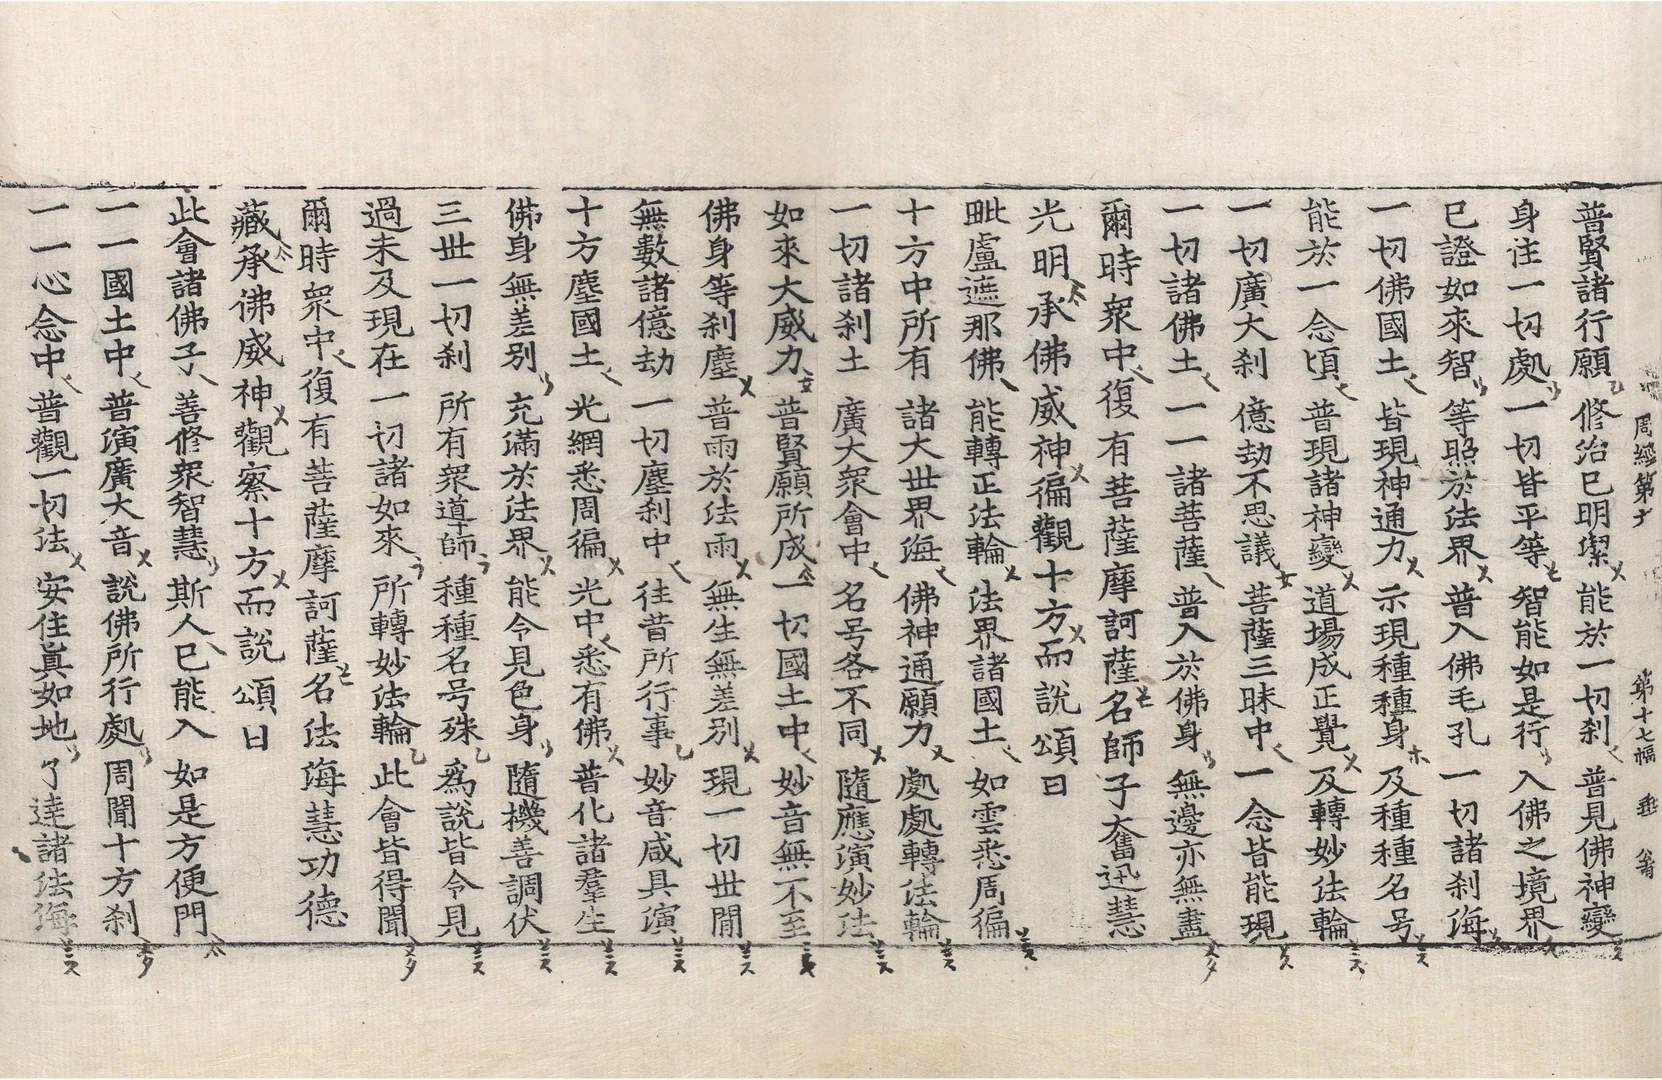 周經第 第十七幅
普賢諸行願 修治已明潔 能於一切刹 普見佛神變
身住一切處 一切皆平等 智能如是行 入佛之境界
已證如來智 等照於法界 普入佛毛孔 一切諸刹海
一切佛國土 皆現神通力 示現種種身 及種種名号
能於一念頃 普現諸神變 道場成正覺 及轉妙法輪
一切廣大刹 億劫不思議 菩薩三昧中 一念皆能現
一切諸佛土 一一諸菩薩 普入於佛身 無邊亦無盡
爾時衆中復有菩薩摩訶薩名師子奮迅慧
光明承佛威神徧觀十方而說頌曰
毗盧遮那佛 能轉正法輪 法界諸國土 如雲悉周徧
十方中所有 諸大世界海 佛神通願力 處處轉法輪
一切諸刹土 廣大衆會中 名号各不同 隨應演妙法
如來大威力 普賢願所成 一切國土中 妙音無不至
佛身等刹塵 普雨於法雨 無生無差別 現一切世間
無數諸億劫 一切塵刹中 往昔所行事 妙音咸具演
十方塵國土 光網悉周徧 光中悉有佛 普化諸羣生
佛身無差別 充滿於法界 能令見色身 隨機善調伏
三世一切刹 所有衆導師 種種名号殊 爲說皆令見
過未及現在 一切諸如來 所轉妙法輪 此會皆得聞
爾時衆中復有菩薩摩訶薩名法海慧功德
藏承佛威神觀察十方而說頌曰
此會諸佛子 善修衆智慧 斯人已能入 如是方便門
一一國土中 普演廣大音 說佛所行處 周聞十方刹
一一心念中 普觀一切法 安住眞如地 了達諸法海